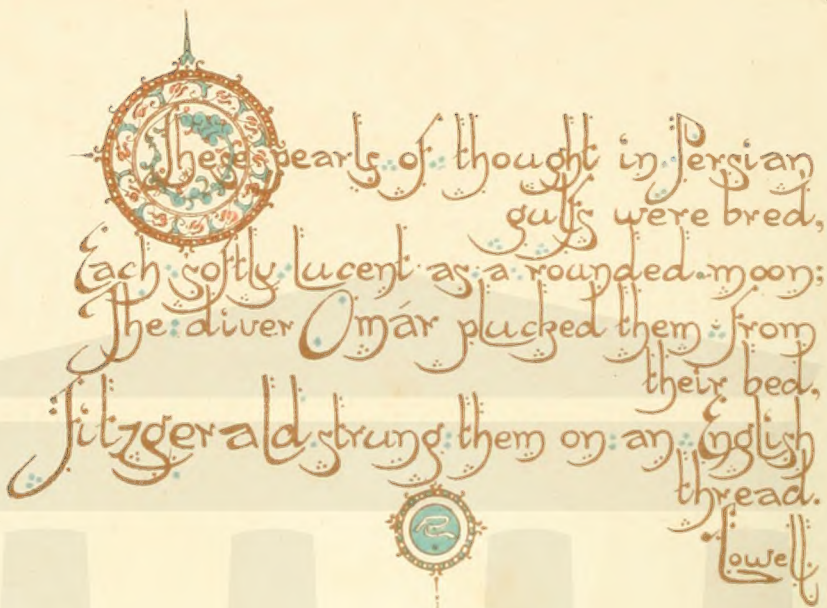 These pearls of thought in Persian
gulfs were bred,
Each softly lucent as a rounded moon;
The diver Omár plucked them from
their bed,
Fitzgerald strung them on an English
thread.
Lowell.